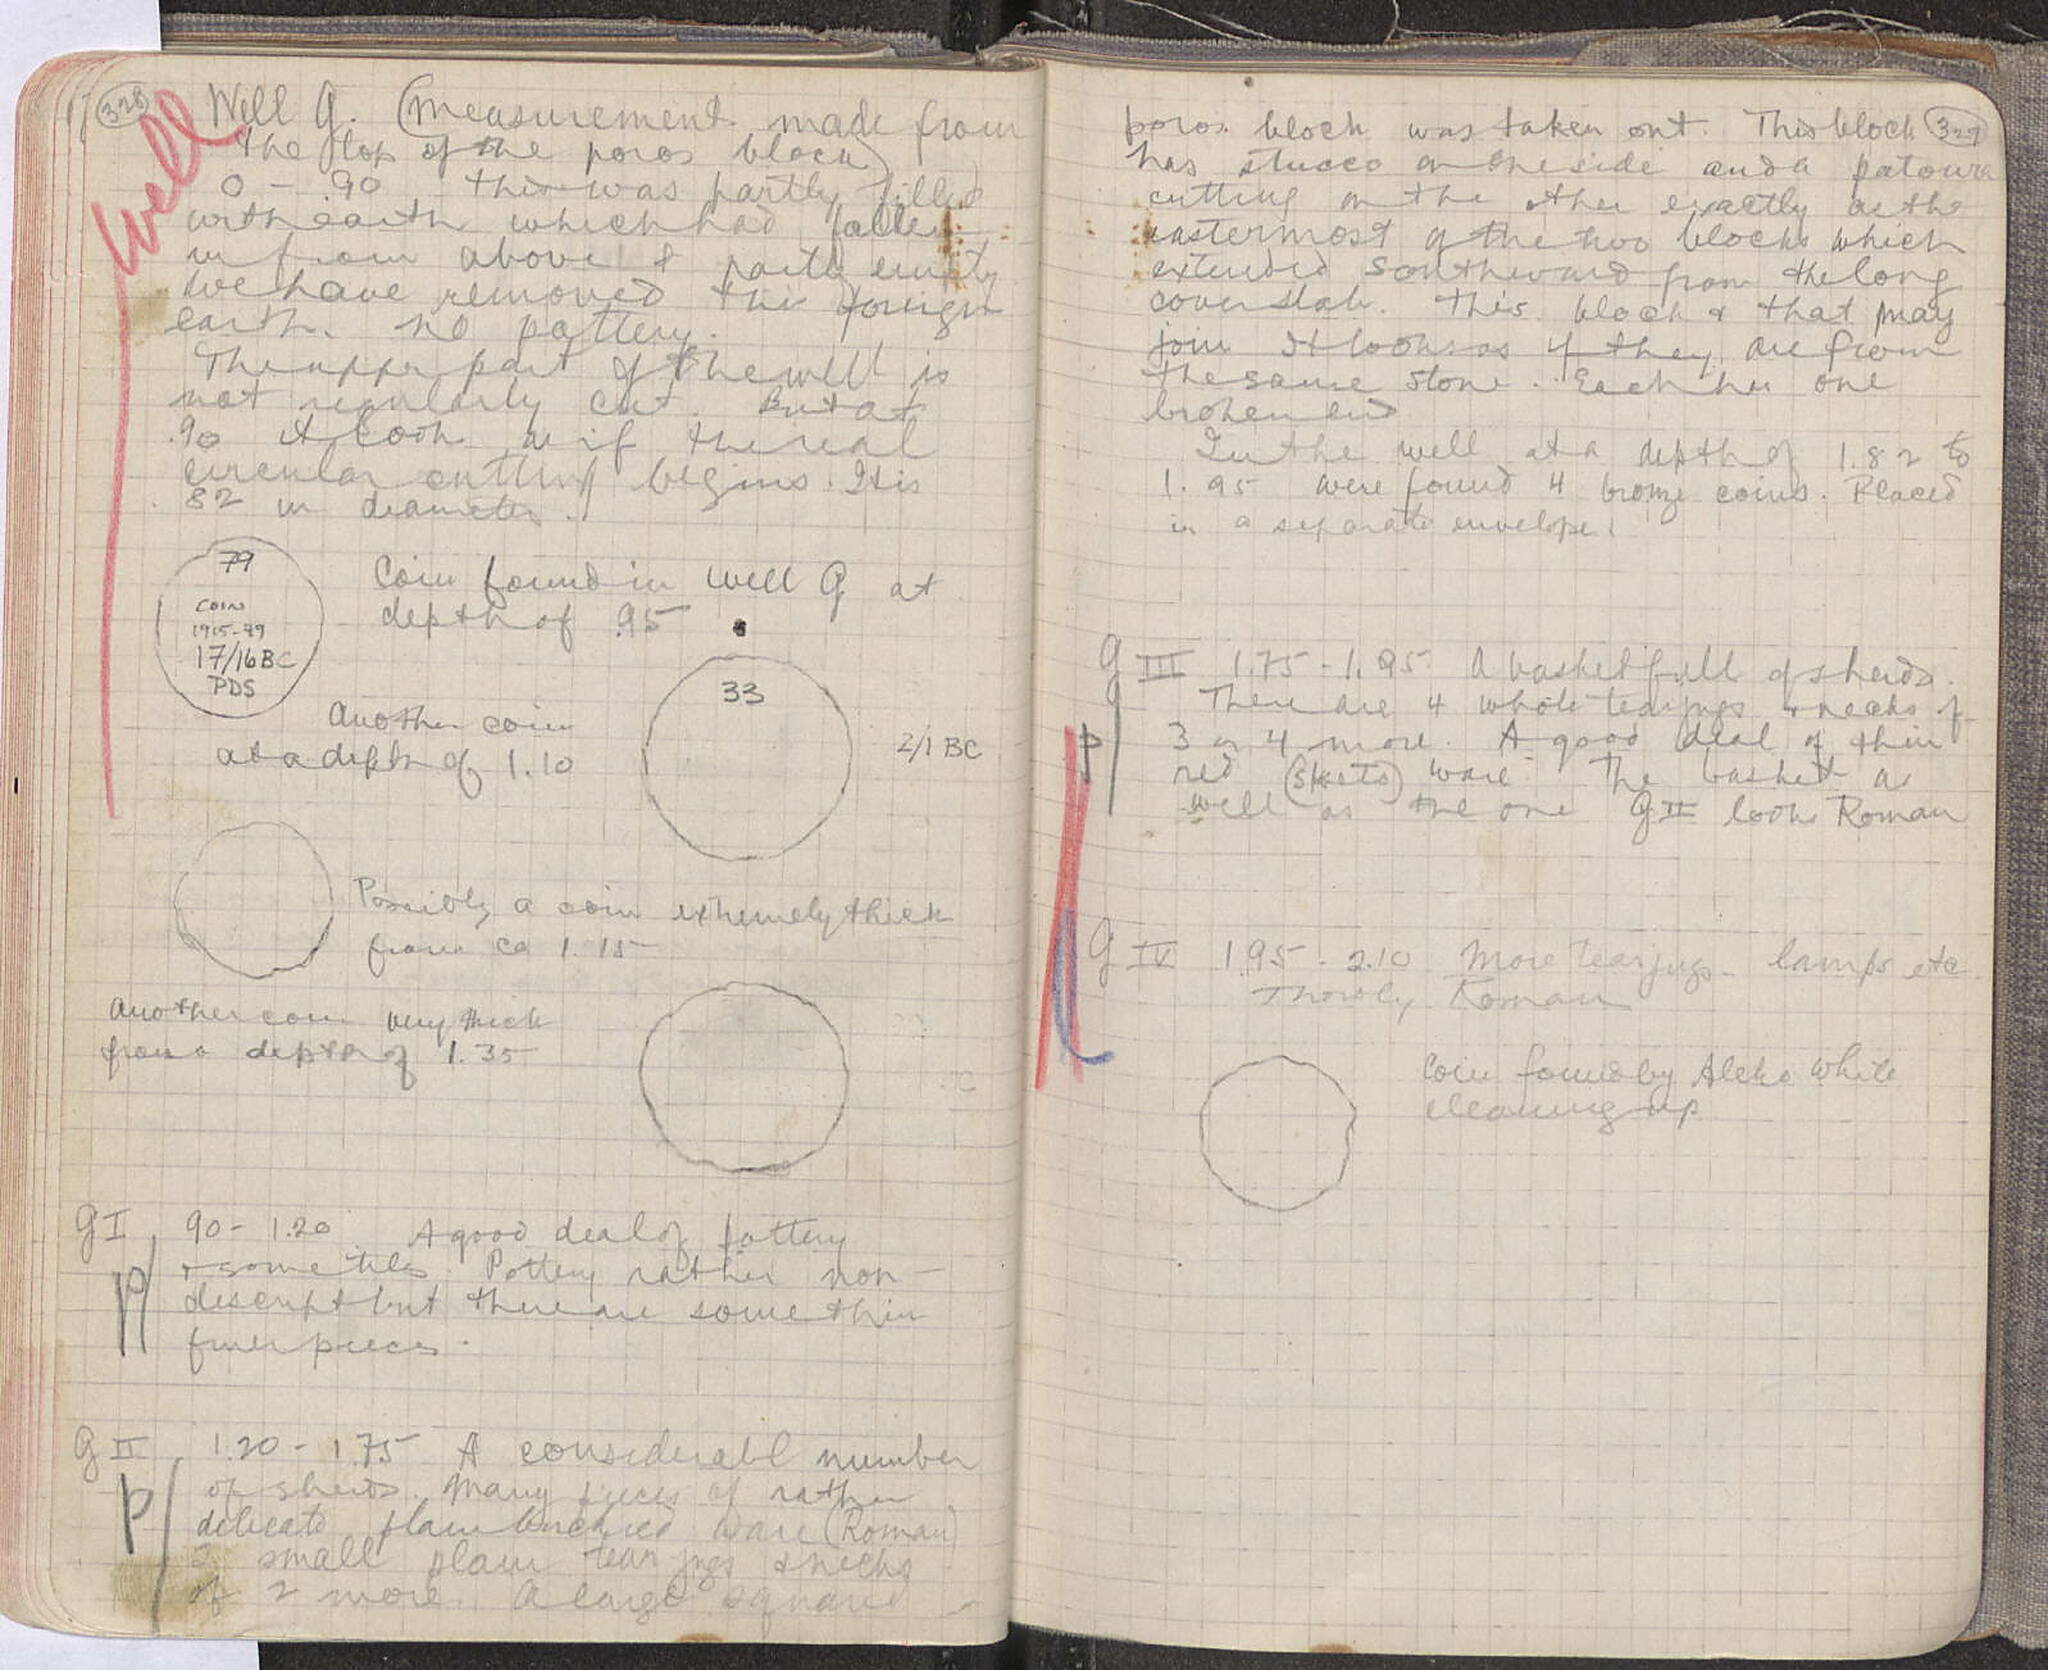 328
Well
Well G. (Measurements made from
the top of the poros block)
0 - .90 this was partly filled
with earth which had fallen
in from above & partly empty
We have removed this foreign
earth. no pottery.
The upper part of the well is
not regularly cut. But at
.90 it looks as if the real
circular cutting begins. It is
.82 in diameter.
79
COIN
1915-79
17/16 BC
PDS
Coin found in Well G at
depth of .95
Another coin
at a depth of 1.10
33
2/1 BC
Possibly a coin extremely thick
from ca 1.15
Another coin very thick
from a depth of 1.35
G I 90 - 1.20 A good deal of pottery
& some tiles. Pottery rather non-
descript but there are some thin
finer pieces.
p
G II 1.20 - 1.75 A considerable number
of sherds. Many pieces of rather
delicate plain ware (Roman)
2 small plain tear jugs & necks
of 2 more. A large squared
p
329
poros block was taken out. This block
has stucco on one side and a patoura
cutting on the other exactly as the
easternmost of the two blocks which
extended southward from the long
cover slab. This block & that may
join It looks as if they are from
the same stone. Each has one
broken end
In the well at a depth of 1.82 to
1.95 were found 4 bronze coins. Placed
in a separate envelope.
G III 1.75 - 1.95 A basket full of sherds.
There are 4 whole tearjugs & necks of
3 or 4 more. A good deal of thin
red ware. The basket as
well as the one G II looks Roman
p
G IV 1.95 - 2.10 More tearjugs - lamps etc.
Roman
Coin found by Aleko while
cleaning up